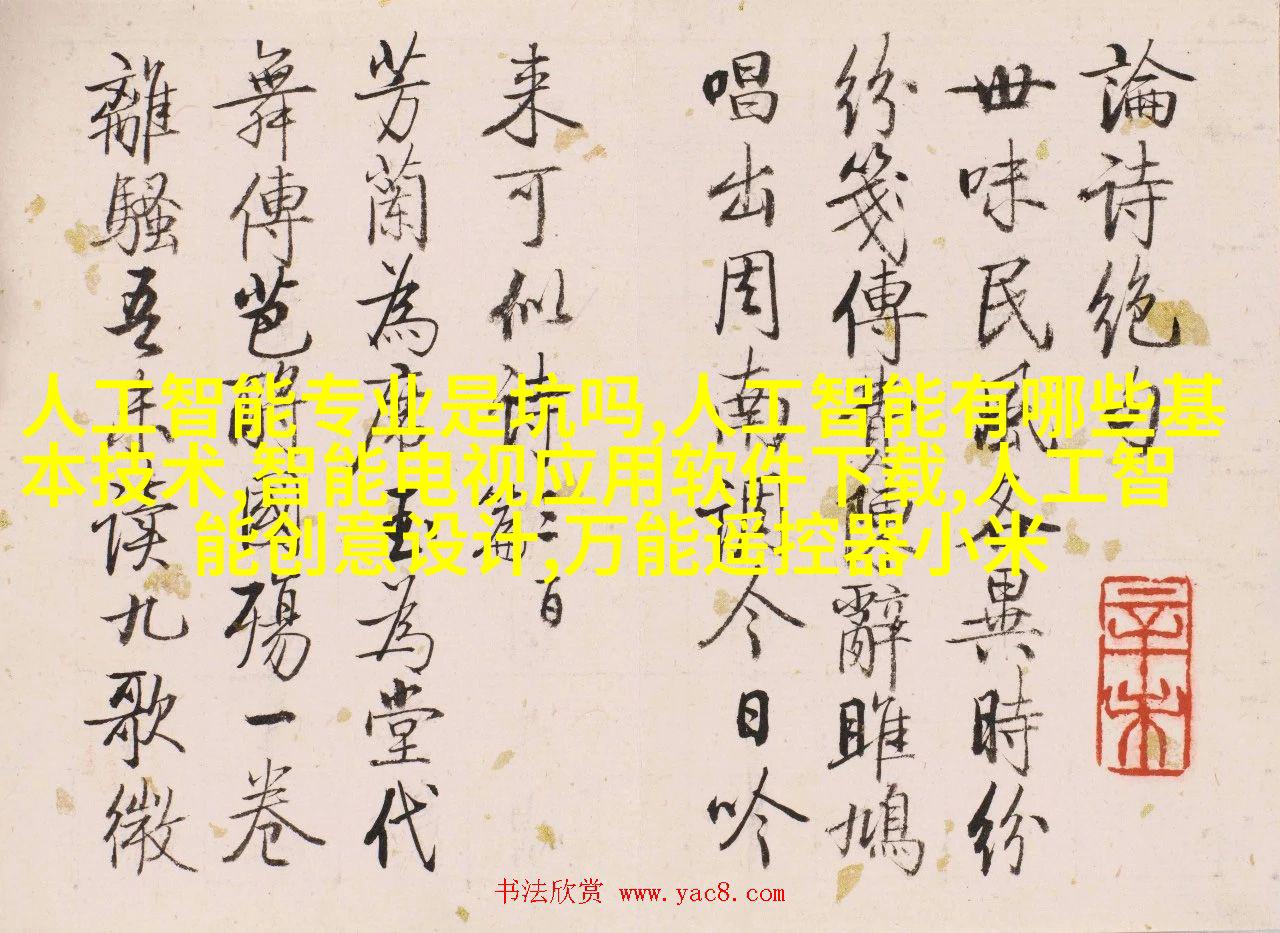 論诗绝句
世味民風各異時紛
紛箋傳費辭雎鳩
唱出周南調今日吟
来可似诗三百篇
芳蘭為席玉為堂代
舞傳芭酹國殤一卷
離騷吾未读九歌微
辛未
人工智能专业是坑吗,人工智能有哪些基
本技术,智能电视应用软件下载,人工智
能创意设计,万能遥控器小米
书法欣赏 www.yac8.com